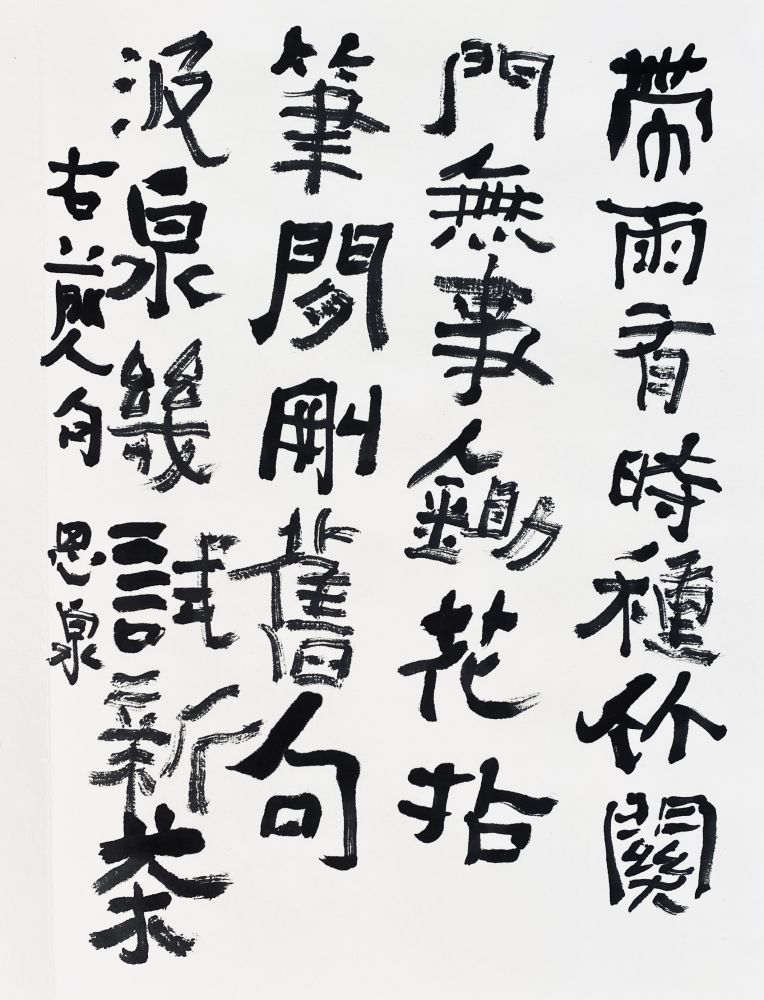 帶雨有時種竹關
門無事鋤花拈
筆閒刪舊句
汲泉幾試新茶
右前人句 思泉